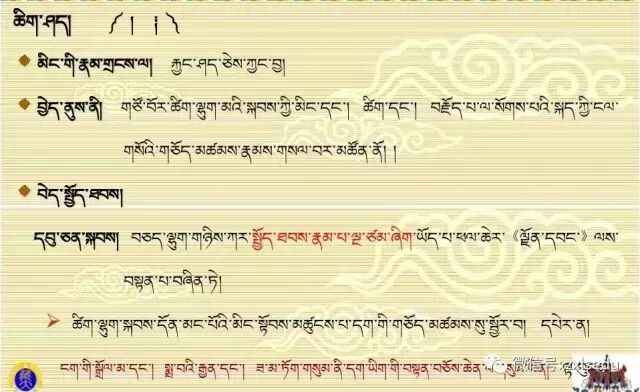 ཚིག་ཤད། ༼།  ། ¦༽
མིང་གི་རྣམ་གྲངས་ལ། རྐྱང་ཤད་ཅེས་ཀྱང་བྱ།
བྱེད་ནུས་ནི། གཙོ་བོར་ཚིག་ལྷུག་མའི་སྐབས་ཀྱི་མིང་དང་། ཚིག་དང་། བརྗོད་པ་ལ་སོགས་པའི་སྐད་ཀྱི་ངལ་
གསོའི་གཅོད་མཚམས་རྣམས་གསལ་བར་མཚོན་ནོ། །
བེད་སྤྱོད་ཐབས།
དབུ་ཅན་སྐབས། བཅད་ལྷུག་གཉིས་ཀར་སྤྱོད་ཐབས་རྣམ་པ་ལྔ་ཙམ་ཞིག་ཡོད་པ་ཕལ་ཆེར་《ལྗོན་དབང་》ལས་
བསྟན་པ་བཞིན་ཏེ།
ཚིག་ལྷུག་སྐབས་དོན་མང་པོའི་མིང་སྟོབས་མཚུངས་པ་དག་གི་གཅོད་མཚམས་སུ་སྦྱོར་བ། དཔེར་ན།
ངག་གི་སྒྲོལ་མ་དང་། སྨྲ་བའི་རྒྱན་དང་། ཟ་མ་ཏོག་གསུམ་ནི་དག་ཡིག་གི་བསྟན་བཅོས་ཆེན་
微信号: zxlsedu